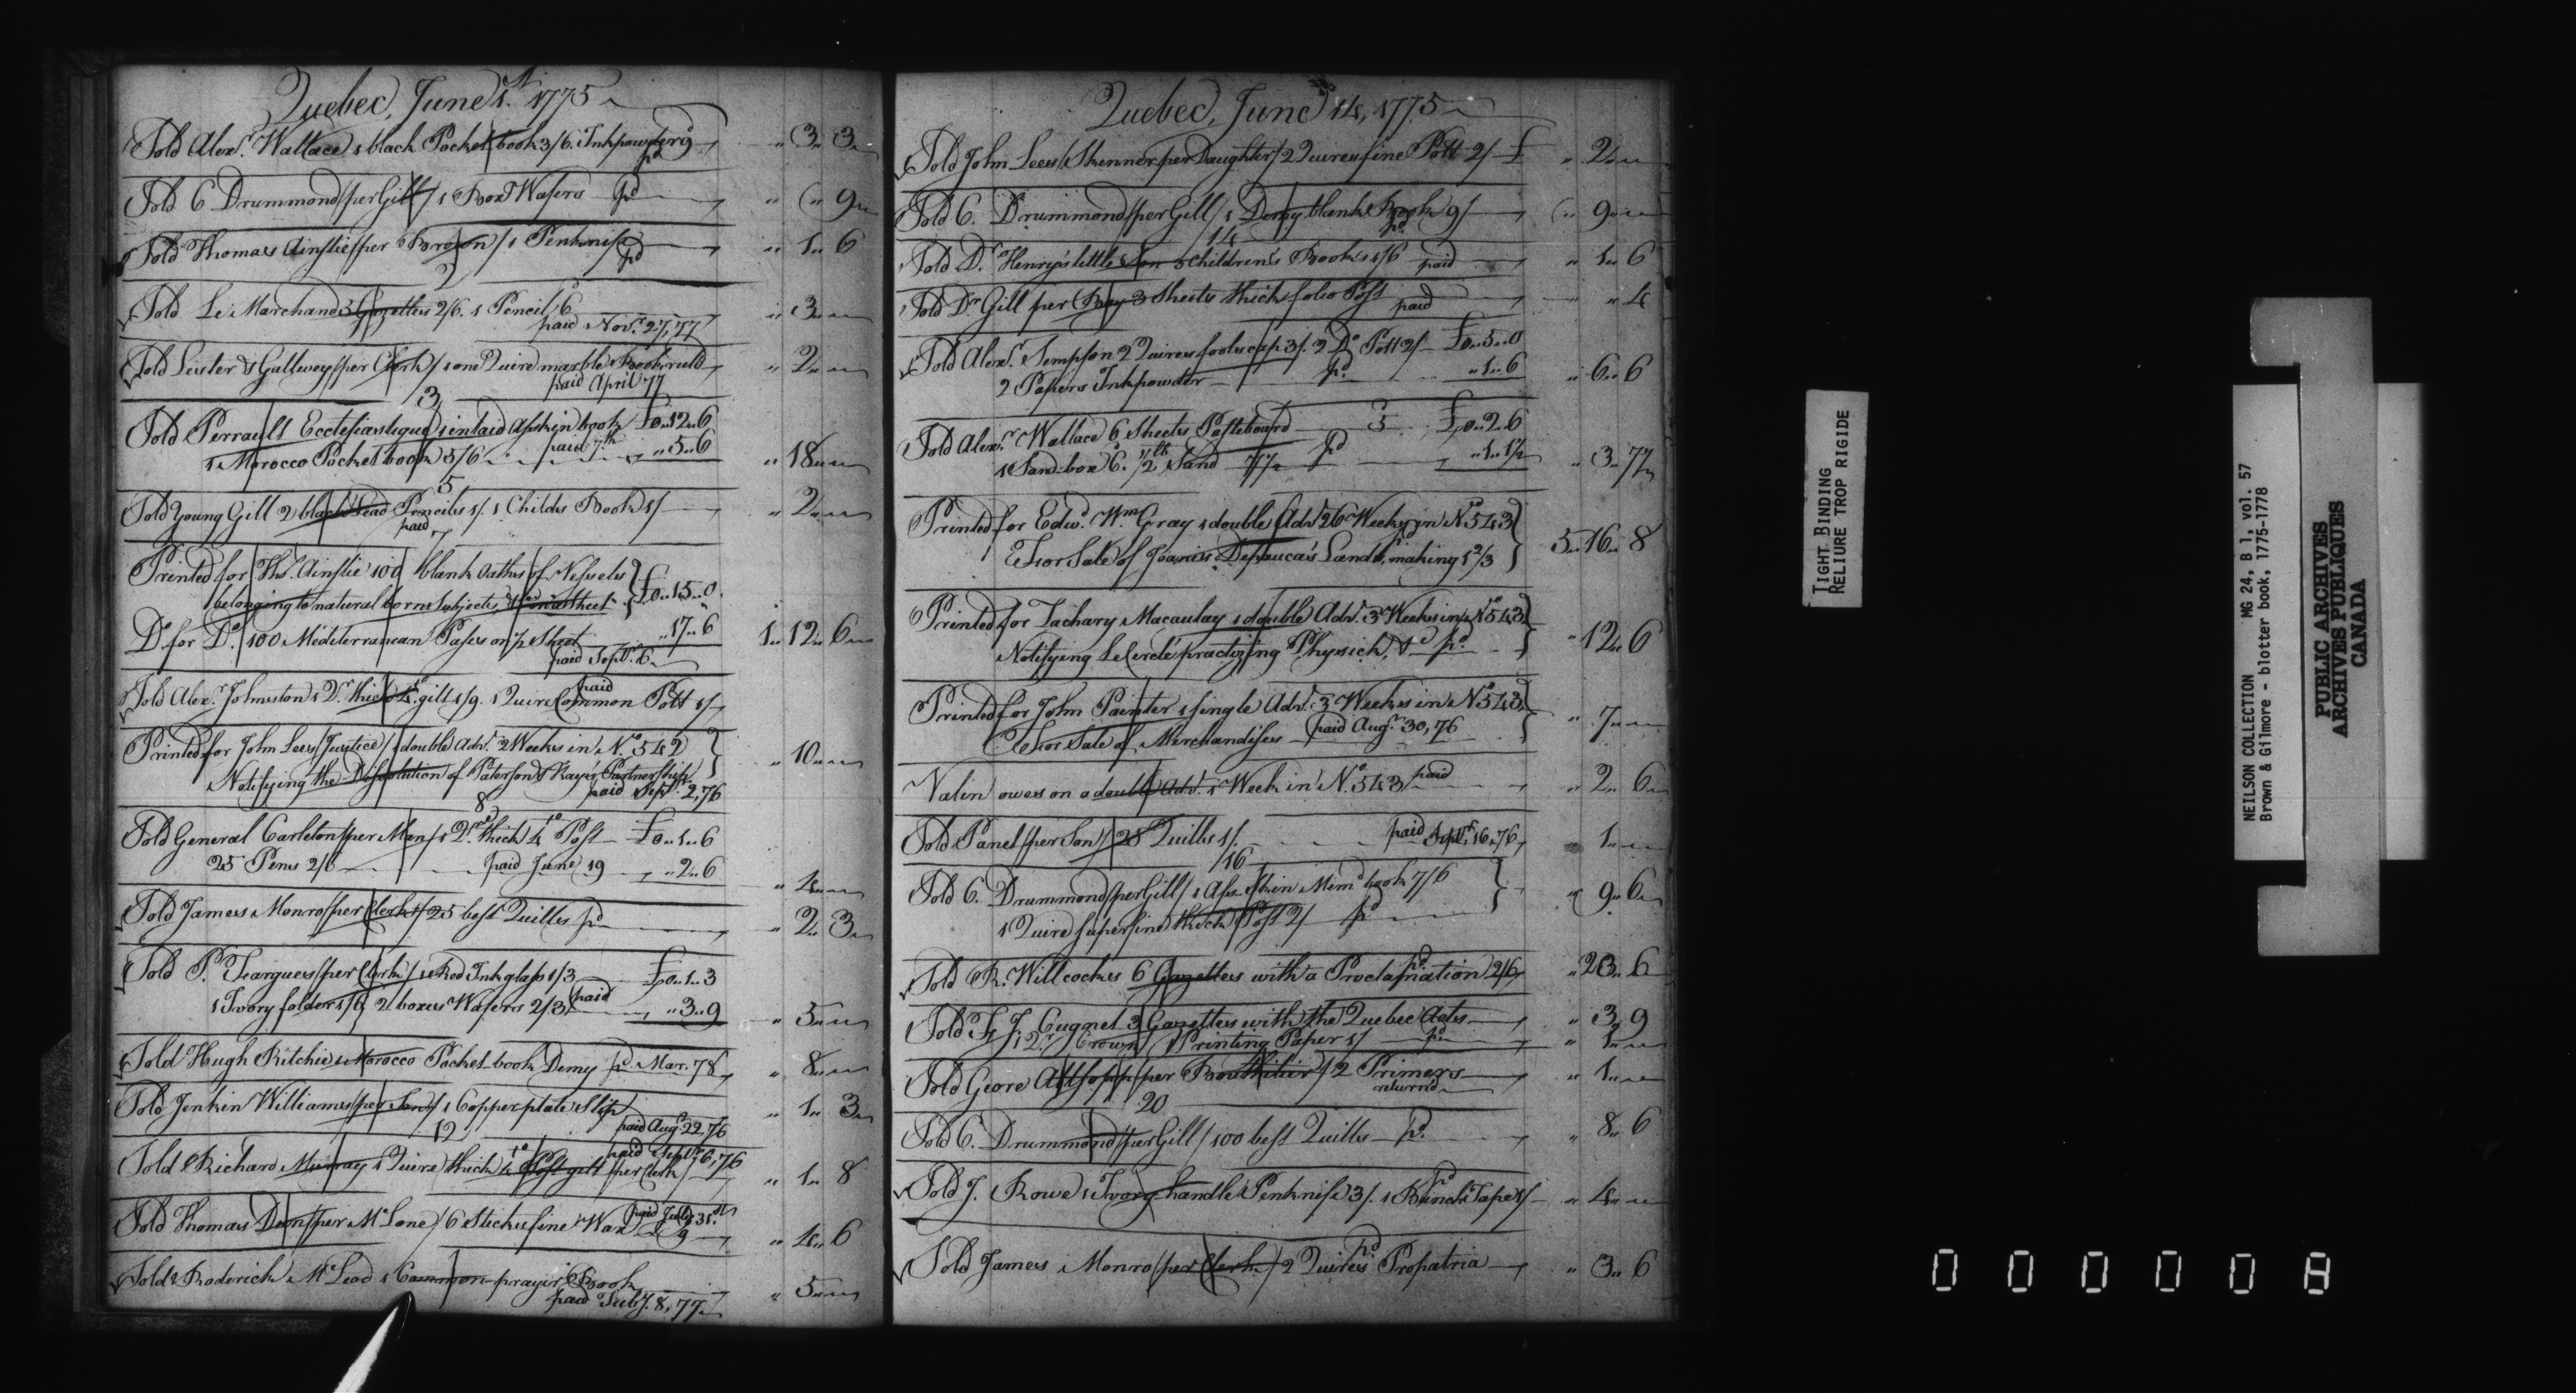 Quebec, June 1st. 1775
Sold Alexr. Wallace 1 black Pocket book 3/6. Inkpowder 9 " 3 " 3
pd
Sold C Drummond /per Gill/ 1 Box Wafers pd " " 9
Sold Thomas Ainslie /per Brown/ 1 Penknife " 1 " 6
pd
2
Sold Le Marchand 3 Gazettes 2/6. 1 Pencil /6 " 3 "
paid Novr. 27, 77
Sold Leister & Gallwey /per Clerk/ 1 one Quire marble Book ruld " 2 "
paid April 77
3
Sold Perrault Ecclesiastique 1 inlaid Asskin book £0 " 12 " 6
1 Morocco Pocket book 5/6 paid 7th " 5 " 6 " 18 "
5
Sold Young Gill 2 black Lead Pencils 1/. 1 Childs Book 1/ " 2 "
paid
7
Printed for Ths. Ainslie 100 blank Oaths of Vessels £0 " 15 " 0
belonging to natural born Subjects, on a Sheet
Do. for Do. 100 Mediterranean Passes on ½ Sheet " 17 " 6 1 " 12 " 6
paid Septr. 6
Sold Alexr. Johnston 1 Qr. thick 4to. gilt 1/9. 1 Quire Common Pott 1/
paid
Printed for John Lees /Justice/ 1 double Advt. 2 Weeks in No. 542 " 10 "
Notifying the Dissolution of Paterson & Kay's Partnership
paid Septr. 2, 76
8
Sold General Carleton /per Man/ 1 Qr. thick 4to Post £0 " 1 " 6
25 Pens 2/6 paid June 19 " 2 " 6 " 4 "
Sold James Monro /per Clerk/ 25 best Quills pd " 2 " 3
Sold P. Feargues /per Clerk/ 1 Red Ink glass 1/3 £0 " 1 " 3
1 Ivory folder 1/6 2 boxes Wafers 2/3 paid " 3 " 9 " 5 "
Sold Hugh Ritchie 1 Morocco Pocket-book Demy pd. Mar. 78 " 8 "
Sold Jenkin Williams /per Son/ 1 Copper plate Slip " 1 " 3
paid Augt. 22, 76
12
Sold Richard Murray 1 Quire thick 4to Post gilt /per Clerk/ " 1 " 8
paid Septr. 6, 76
Sold Thomas Dunn /per McLane/ 6 Sticks fine Wax 9 " 4 " 6
paid July 31st
Sold Roderick McLeod 1 Common prayer Book " 5 "
paid July. 8, 77
Quebec, June 14, 1775
Sold John Lees /Skenner per Daughter/ 2 Quires fine Pott 2/ £ " 2 "
Sold C. Drummond /per Gill/ 1 Demy blank Book 9/ " 9 "
pd
14
Sold Dr. Henry's little Son 3 Children's Books 1/6 paid " 1 " 6
Sold Dr Gill per Boy 3 Sheets thick folio Post paid " " 4
Sold Alexr. Simpson 2 Quires foolscap 3/. 2 Do Pott 2/ £0 " 5 " 0
2 Papers Inkpowder pd. " 1 " 6 " 6 " 6
Sold Alexr. Wallace 6 Sheets Pasteboard 5 £0 " 2 " 6
1 Sand-box 6. ½ lb Sand 7½ pd " 1 " 1½ " 3 " 7½
Printed for Edwd. Wm Gray 1 double Advt 26 Weeks in No 543 5 " 16 " 8
For Sale of Joanis Depauca's Lands, making 1 2/3
Printed for Zachary Macaulay 1 double Advt. 3 Weeks in No 543 " 12 " 6
Notifying LeCercle practizing Physick, &c pd.
Printed for John Painter 1 single Advt. 3 Weeks in No 543 " 7 "
For Sale of Merchandises paid Augt. 30, 76
Valin owes on a double Advt. 1 Week in No. 543 paid " 2 " 6
Sold Panet /per Son/ 25 Quills 1/. paid Septr. 16, 76 " 1 "
16
Sold C. Drummond /per Gill/ 1 Ass Skin Memdm book 7/6 " 9 " 6
1 Quire superfine thick Post 2/ pd
Sold R. Willcocks 6 Gazettes with a Proclamation 2/6 pd " 2 " 6
Sold F. J. Cugnet 3 Gazettes with the Quebec Acts " 3 " 9
1 Qr. Crown Printing Paper 1/ pd. " 1 "
Sold Geore Allsopp /per Bouthilier/ 2 Primers " 1 "
returnd
20
Sold C. Drummond /per Gill/ 100 best Quills pd. " 8 " 6
Sold J. Rowe 1 Ivory handle Penknife 3/. 1 Bunch Tape 1/ pd " 4 "
Sold James Monro /per Clerk/ 2 Quires Propatria pd " 3 " 6
TIGHT BINDING
RELIURE TROP RIGIDE
NEILSON COLLECTION MG 24, B 1, vol. 57
Brown & Gilmore - blotter book, 1775-1778
PUBLIC ARCHIVES
ARCHIVES PUBLIQUES
CANADA
000008